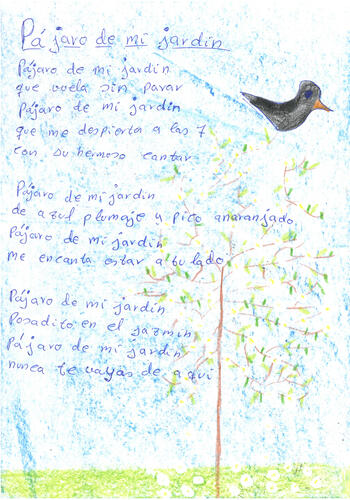 Pájaro de mi jardín
Pájaro de mi jardín
que vuela sin parar
Pájaro de mi jardín
que me despierta a las 7
con su hermoso cantar
Pájaro de mi jardín
de azul plumaje y pico anaranjado
Pájaro de mi jardín
me encanta estar a tu lado
Pájaro de mi jardín
Posadito en el jazmín
Pájaro de mi jardín
nunca te vayas de aquí